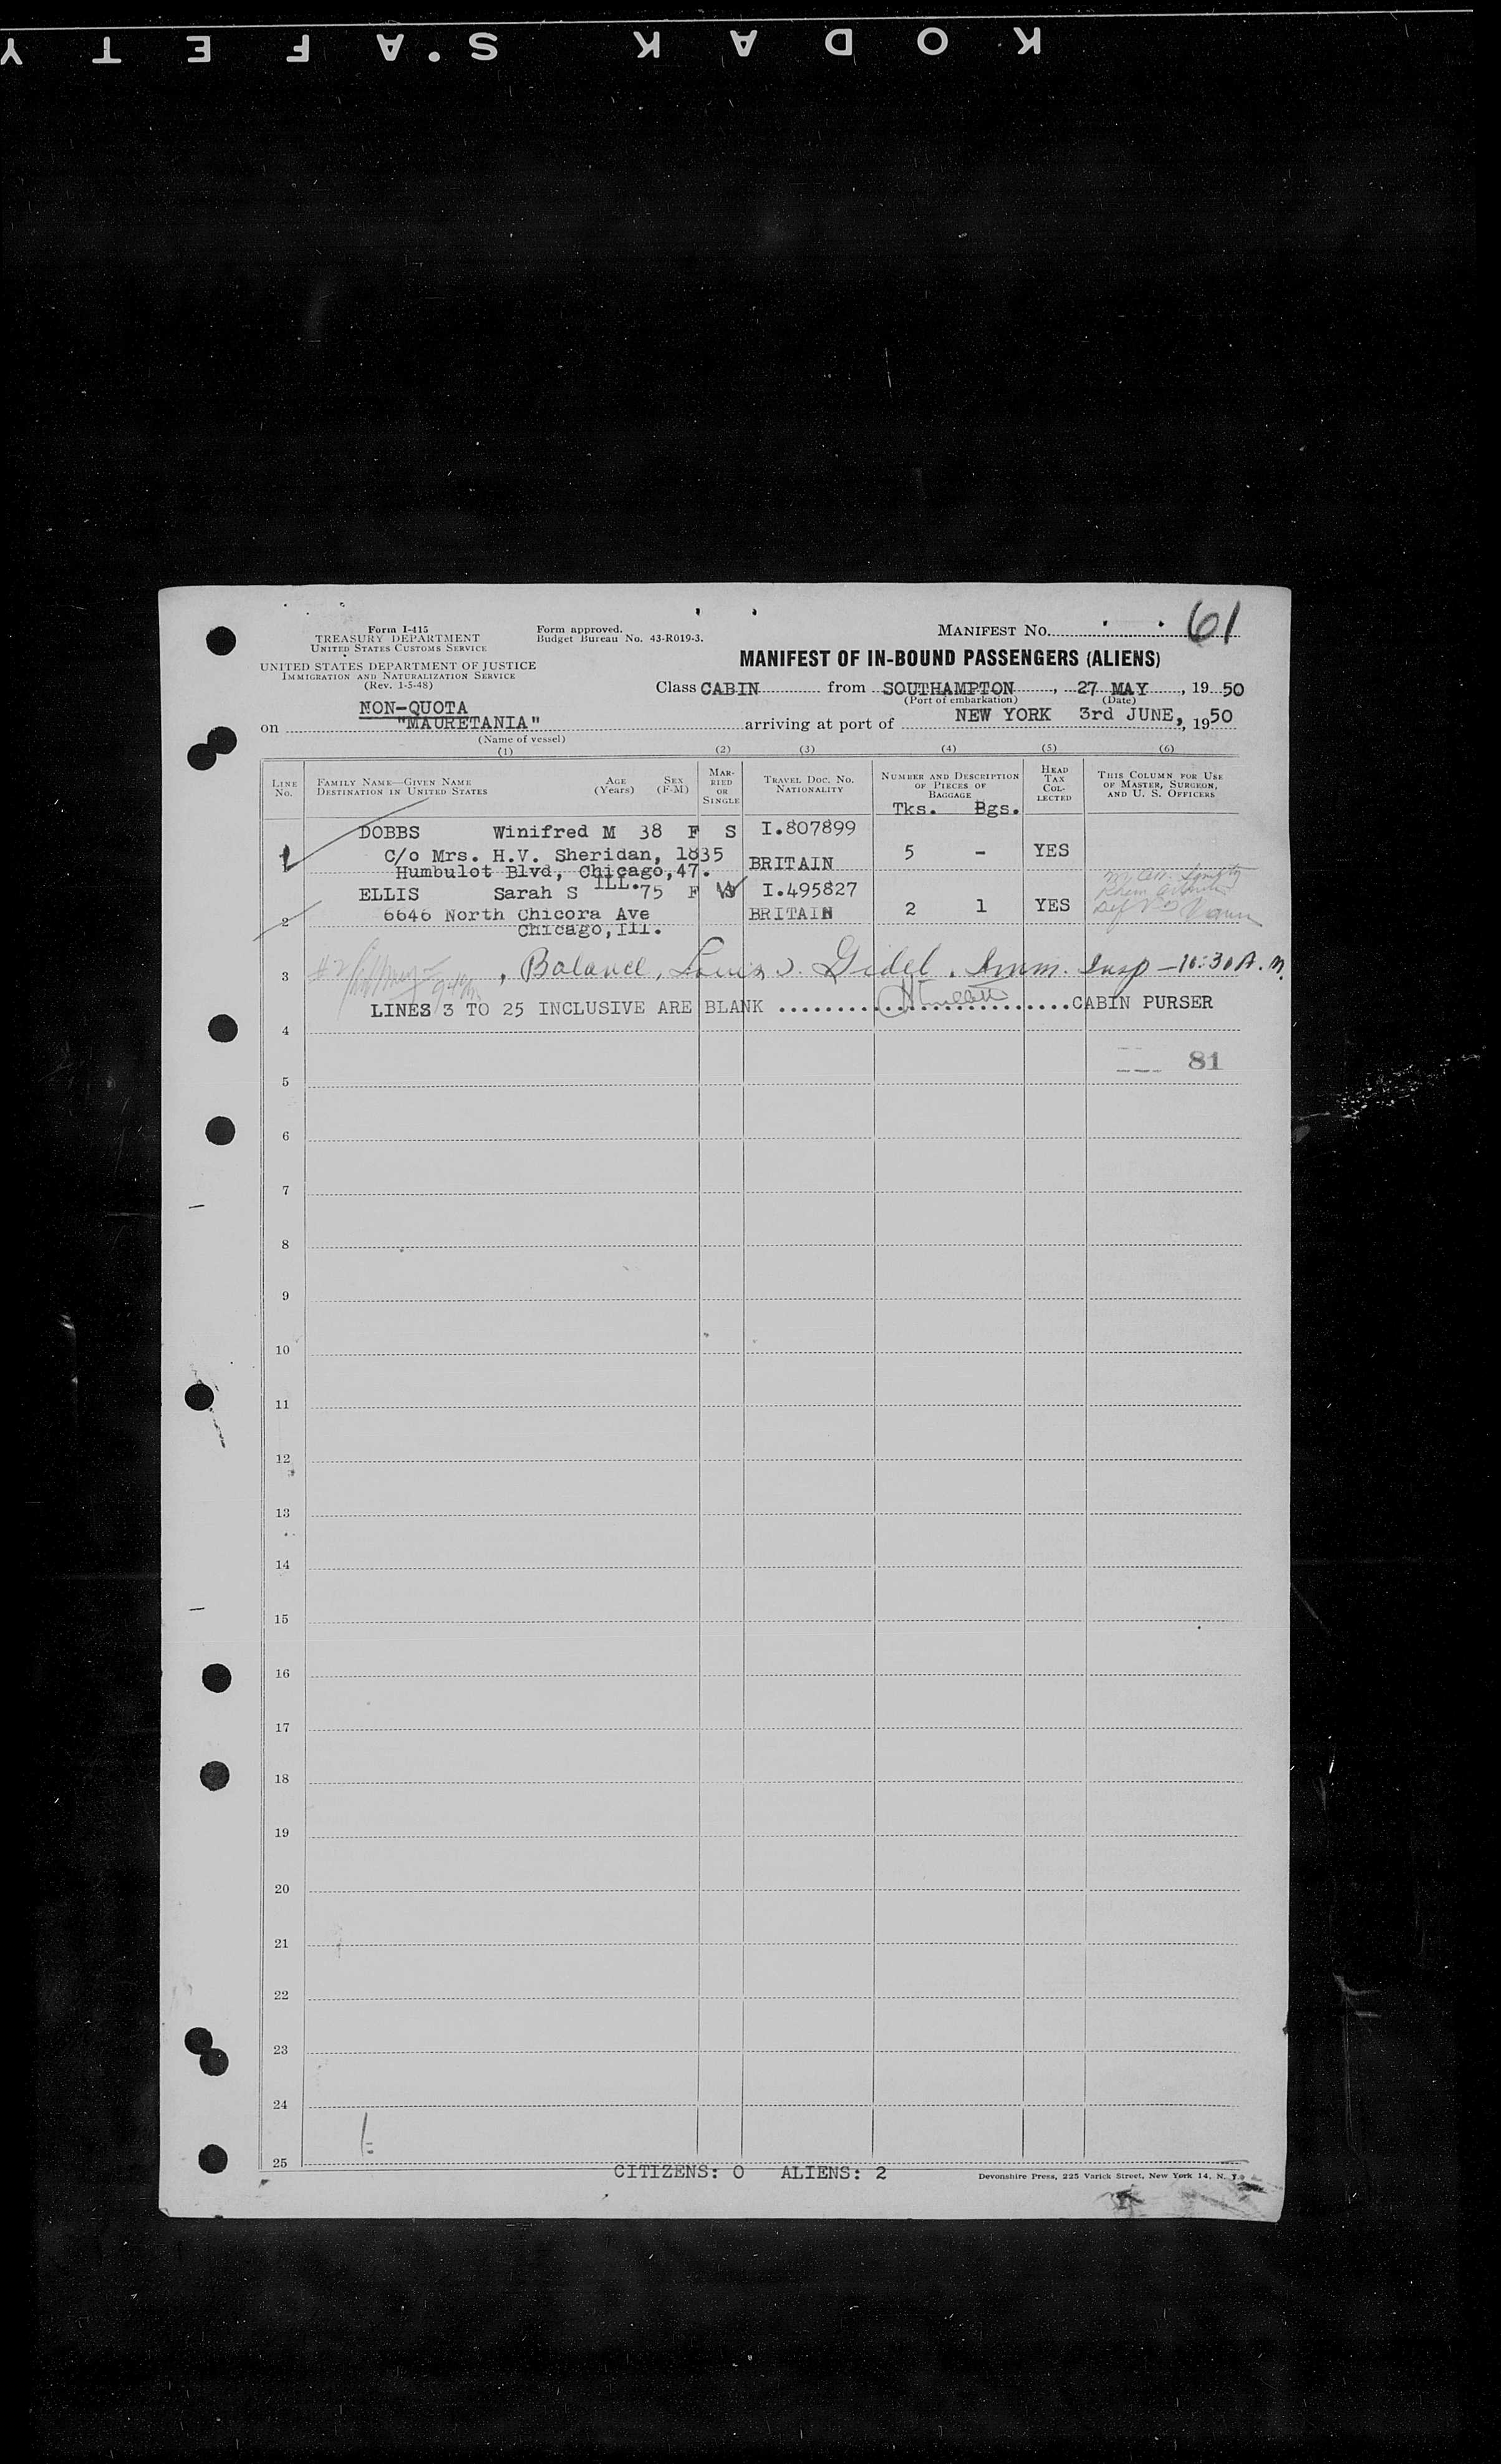 KODAK SAFETY
Form I-415
TREASURY DEPARTMENT
UNITED STATES CUSTOMS SERVICE
UNITED STATES DEPARTMENT OF JUSTICE
IMMIGRATION AND NATURALIZATION SERVICE
(Rev. 1-5-48)
Form approved.
Budget Bureau No. 43-R019-3.
MANIFEST NO. 61
MANIFEST OF IN-BOUND PASSENGERS (ALIENS)
Class CABIN from SOUTHAMPTON, 27 MAY, 1950
(Port of embarkation) (Date)
NON-QUOTA
on "MAURETANIA" arriving at port of NEW YORK 3rd JUNE, 1950
(Name of vessel)
(1) (2) (3) (4) (5) (6)
LINE NO. FAMILY NAME—GIVEN NAME DESTINATION IN UNITED STATES AGE (Years) SEX (F-M) MARRIED OR SINGLE TRAVEL DOC. NO. NATIONALITY NUMBER AND DESCRIPTION OF PIECES OF BAGGAGE HEAD TAX COLLECTED THIS COLUMN FOR USE OF MASTER, SURGEON, AND U. S. OFFICERS
Tks. Bgs.
DOBBS Winifred M 38 F S I.807899
1 C/o Mrs. H.V. Sheridan, 1835 BRITAIN 5 - YES
Humbulot Blvd, Chicago,47.
ILL.
ELLIS Sarah S 75 F W I.495827
2 6646 North Chicora Ave BRITAIN 2 1 YES
Chicago,Ill.
3 , Balance, Louis J. Gidel. Imm. Insp - 10:30 A.M.
LINES 3 TO 25 INCLUSIVE ARE BLANK ............................CABIN PURSER
4
81
5
6
7
8
9
10
11
12
13
14
15
16
17
18
19
20
21
22
23
24
25
CITIZENS: 0 ALIENS: 2
Devonshire Press, 225 Varick Street, New York 14, N. Y.